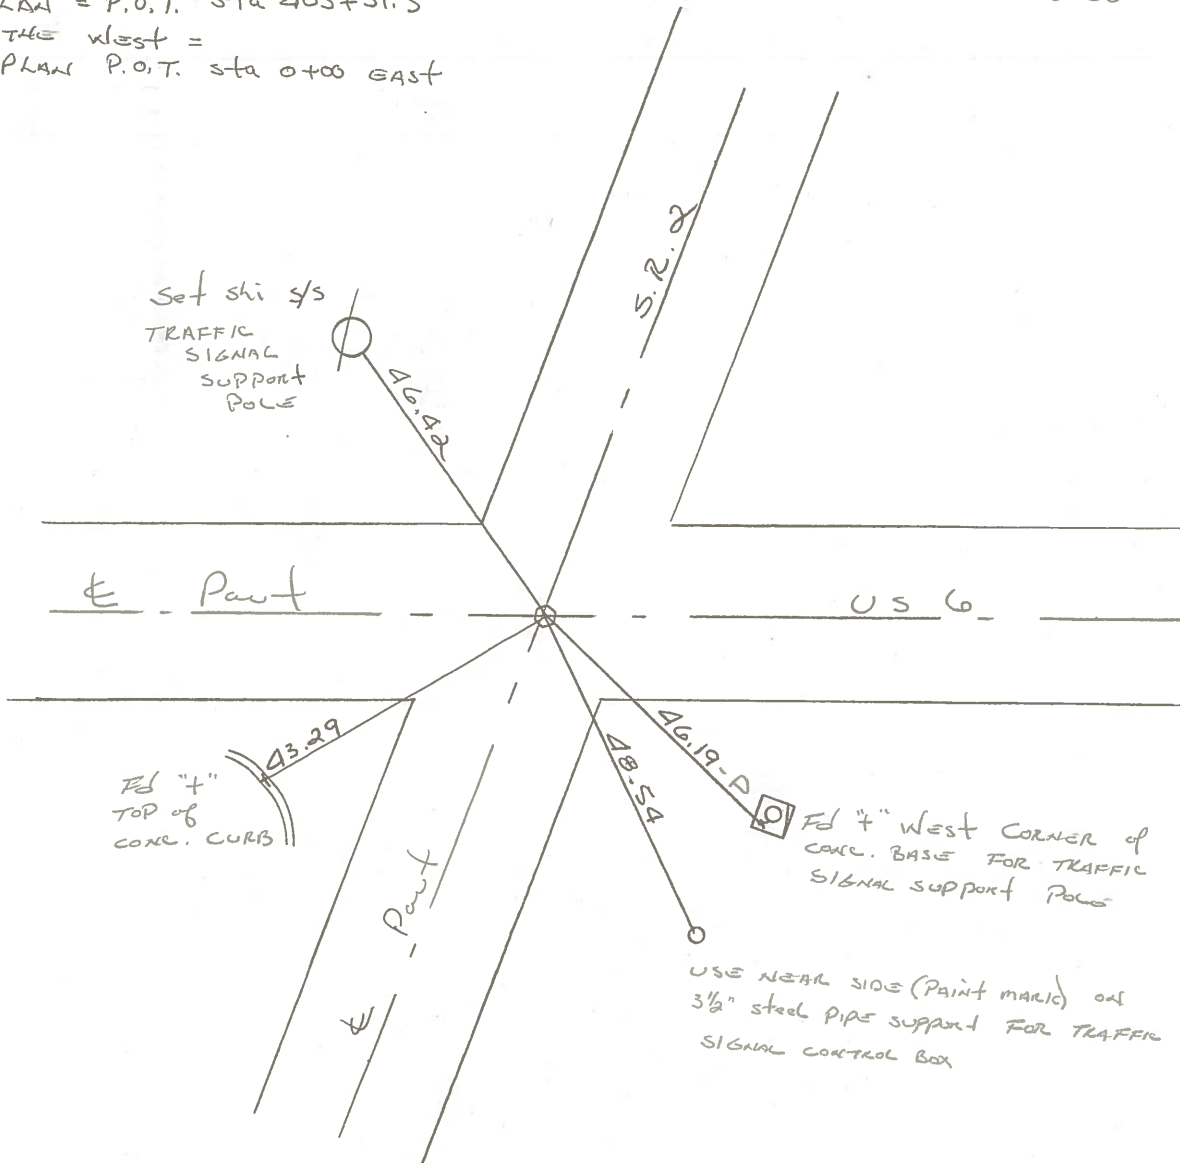 P.O.T. sta
THE West =
PLAN P.O.T. sta 0+00 EAST
S.R. 2
Set shi s/s
TRAFFIC
SIGNAL
SUPPORT
POLE
46.42
℄ Pav't
US 6
43.29
46.19-A
48.54
Fd "+"
TOP of
CONC. CURB
Fd "+" West CORNER of
CONC. BASE FOR TRAFFIC
SIGNAL SUPPORT Pole
℄ Pav't
USE NEAR SIDE (PAINT MARK) ON
3½" steel PIPE SUPPORT FOR TRAFFIC
SIGNAL CONTROL BOX